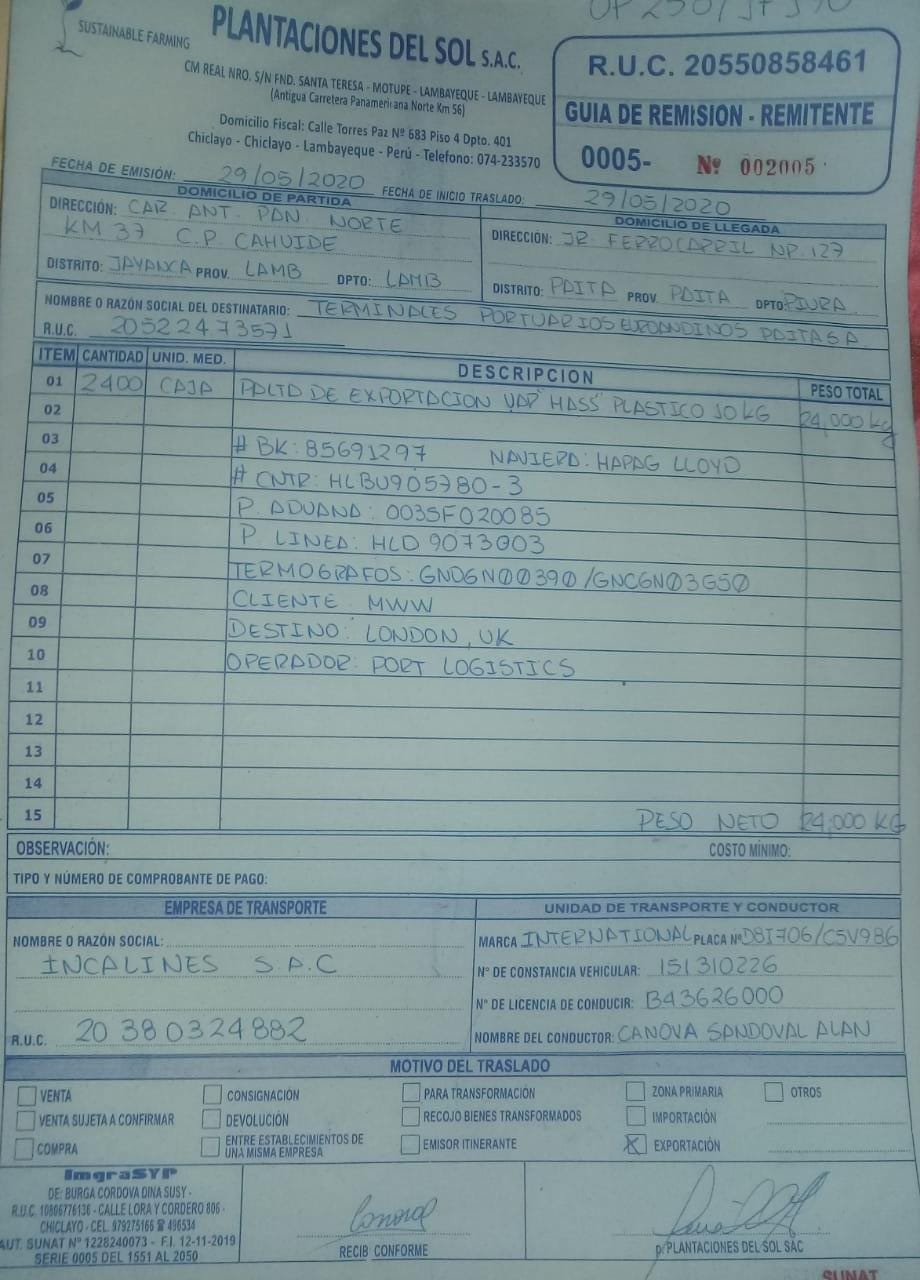 SUSTAINABLE FARMING
PLANTACIONES DEL SOL S.A.C.
CM REAL NRO. S/N FND. SANTA TERESA - MOTUPE - LAMBAYEQUE - LAMBAYEQUE
(Antigua Carretera Panamericana Norte Km 56)
Domicilio Fiscal: Calle Torres Paz Nº 683 Piso 4 Dpto. 401
Chiclayo - Chiclayo - Lambayeque - Perú - Telefono: 074-233570
R.U.C. 20550858461
GUIA DE REMISION - REMITENTE
0005- Nº 002005
FECHA DE EMISIÓN: 29/05/2020 FECHA DE INICIO TRASLADO: 29/05/2020
DOMICILIO DE PARTIDA
DIRECCIÓN: CAR. ANT. PAN. NORTE
KM 37 C.P. CAHUIDE
DISTRITO: JAYANCA PROV. LAMB DPTO: LAMB
DOMICILIO DE LLEGADA
DIRECCIÓN: JR. FERROCARRIL NR. 127
DISTRITO: PAITA PROV PAITA DPTO PIURA
NOMBRE O RAZÓN SOCIAL DEL DESTINATARIO: TERMINALES PORTUARIOS EUROANDINOS PAITA SA
R.U.C. 20522473571
ITEM CANTIDAD UNID. MED. DESCRIPCION PESO TOTAL
01 2400 CAJA PALTA DE EXPORTACION VAR "HASS" PLASTICO 10 KG 24,000 kg
02
03 # BK: 85691297 NAVIERA: HAPAG LLOYD
04 # CNTR: HLBU905780-3
05 P. ADUANA: 0035F020085
06 P. LINEA: HLD 9073003
07 TERMOGRAFOS: GNDGN00390/GNCGN03G50
08 CLIENTE: MWW
09 DESTINO: LONDON, UK
10 OPERADOR: PORT LOGISTICS
11
12
13
14
15 PESO NETO 24,000 KG
OBSERVACIÓN: COSTO MÍNIMO:
TIPO Y NÚMERO DE COMPROBANTE DE PAGO:
EMPRESA DE TRANSPORTE
NOMBRE O RAZÓN SOCIAL:
INCALINES S.A.C
R.U.C. 20380324882
UNIDAD DE TRANSPORTE Y CONDUCTOR
MARCA INTERNATIONAL PLACA Nº D8I706/C5V986
N° DE CONSTANCIA VEHICULAR: 151310226
N° DE LICENCIA DE CONDUCIR: B43626000
NOMBRE DEL CONDUCTOR: CANOVA SANDOVAL ALAN
MOTIVO DEL TRASLADO
VENTA CONSIGNACIÓN PARA TRANSFORMACIÓN ZONA PRIMARIA OTROS
VENTA SUJETA A CONFIRMAR DEVOLUCIÓN RECOJO BIENES TRANSFORMADOS IMPORTACIÓN
COMPRA ENTRE ESTABLECIMIENTOS DE UNA MISMA EMPRESA EMISOR ITINERANTE X EXPORTACIÓN
ImgraSYP
DE: BURGA CORDOVA DINA SUSY -
R.U.C. 10806776136 - CALLE LORA Y CORDERO 806 -
CHICLAYO - CEL. 979275166 ☎ 496534
AUT. SUNAT N° 1228240073 - F.I. 12-11-2019
SERIE 0005 DEL 1551 AL 2050
RECIB CONFORME
p. PLANTACIONES DEL SOL SAC
SUNAT